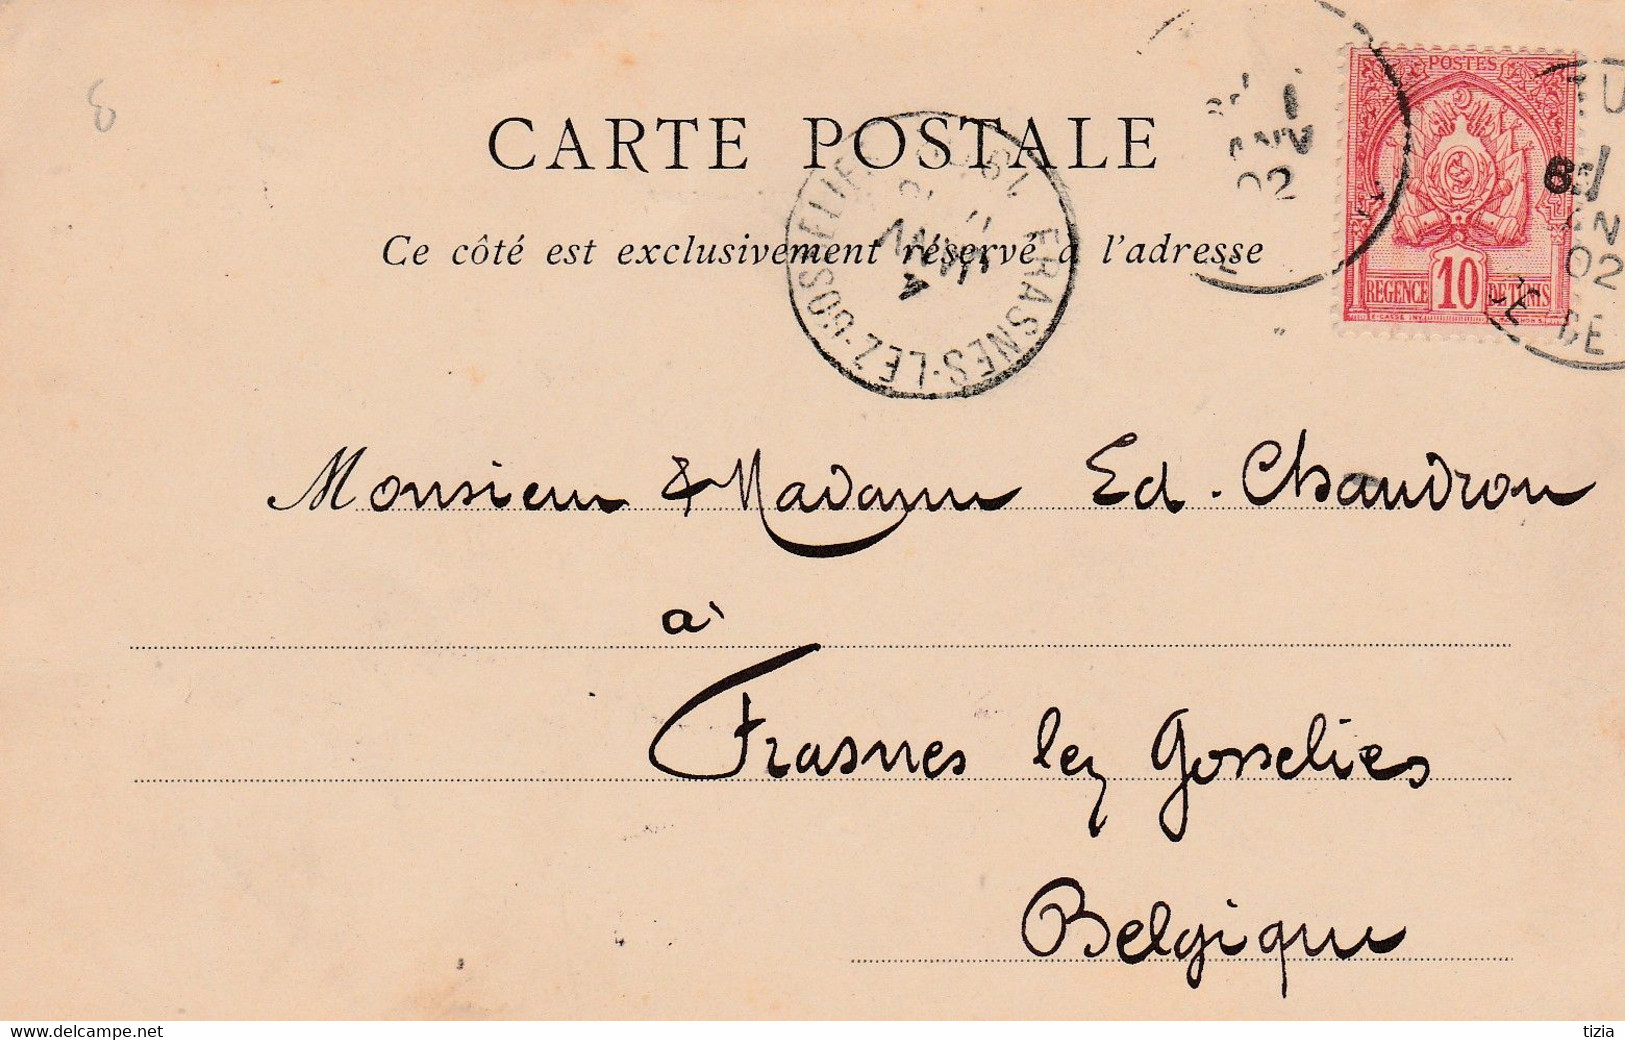 CARTE POSTALE
Ce côté est exclusivement réservé à l'adresse
POSTES
REGENCE 10 DE TUNIS
JANV
02
FRASNES-LEZ-GOSSELIES
4 JANV
Monsieur & Madame Ed. Chaudron
à
Frasnes lez Gosselies
Belgique
8
www.delcampe.net
tizia